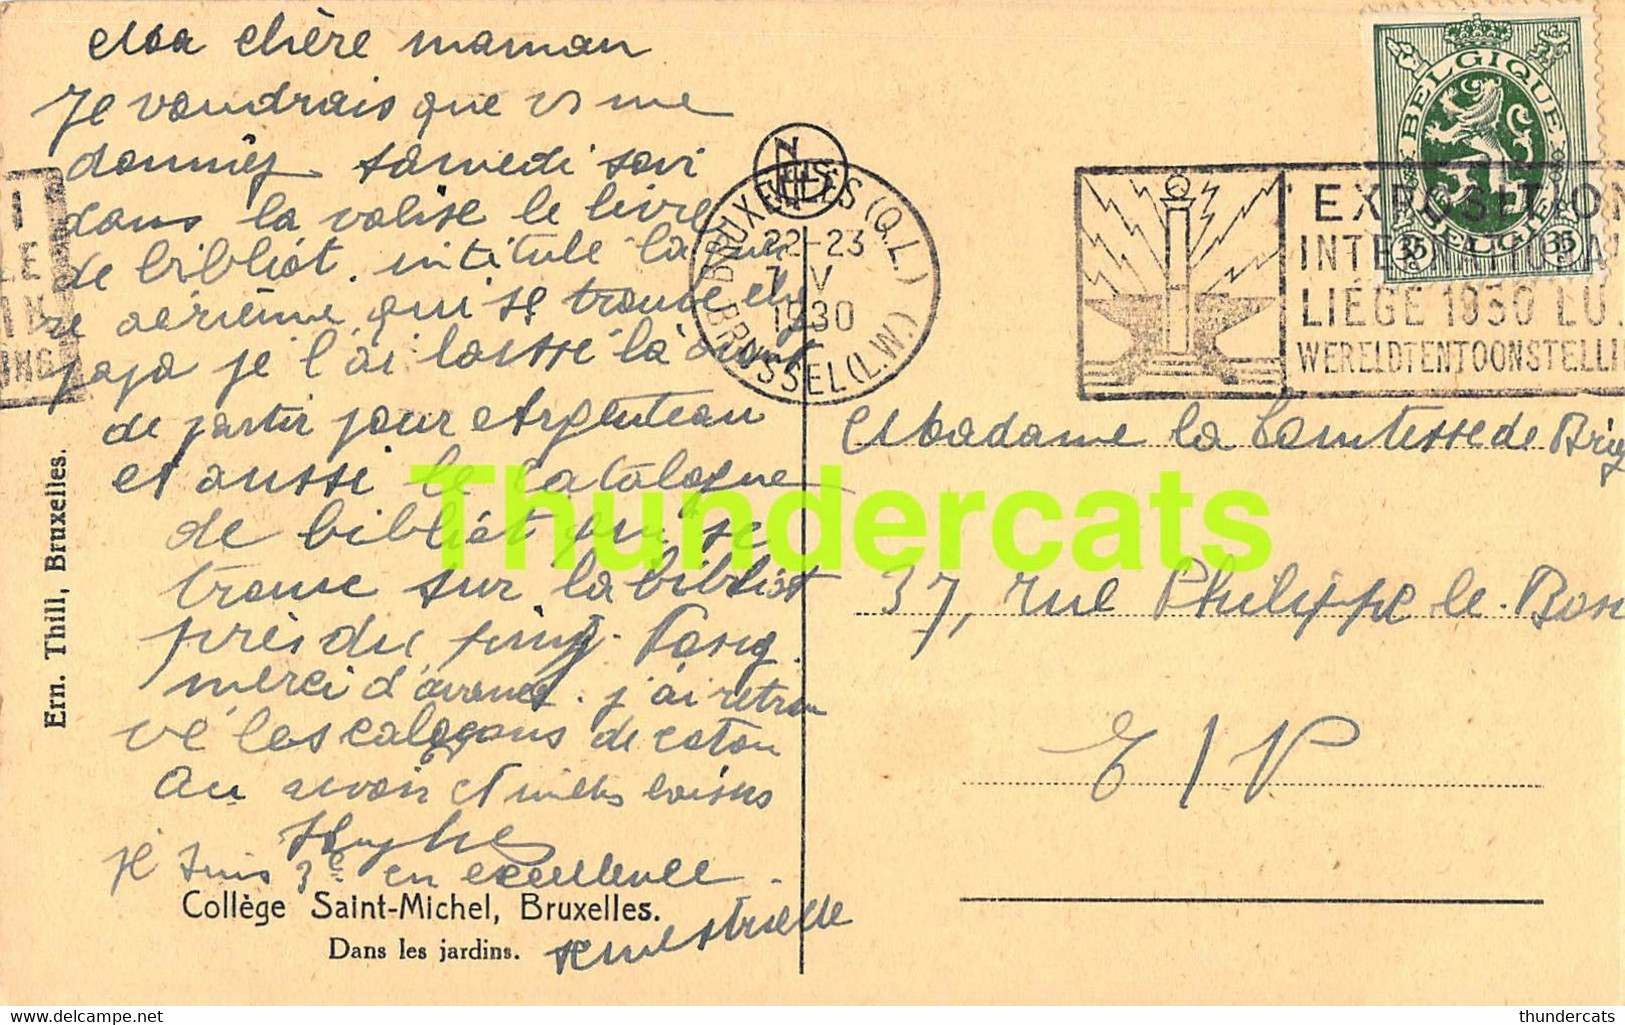 Ma chère maman
Je voudrais que v me
donniez samedi soir
dans la valise le livre
de bibliot. intitulé la guer
re aérienne qui se trouve chez
papa je l'ai laissé là avant
de partir pour Argenteau
et aussi le catalogue
de bibliot qui se
trouve sur la bibliot
près du
merci d'avance. j'ai retrou
vé les caleçons de coton
Au revoir et milles baisers
Hughes
Je suis 3e en excellence
semestrielle
Collège Saint-Michel, Bruxelles.
Dans les jardins.
Ern. Thill, Bruxelles.
N
BRUXELLES (Q.L.)
22-23
7 V
1930
BRUSSEL (L.W.)
EXPOSITION
INTERNATIONA
LIÉGE 1930 LU
WERELDTENTOONSTELLI
BELGIQUE
BELGIE
35 35
Madame la Comtesse de
37, rue Philippe le Bon
E/V
Thundercats
delcampe.net
thundercats